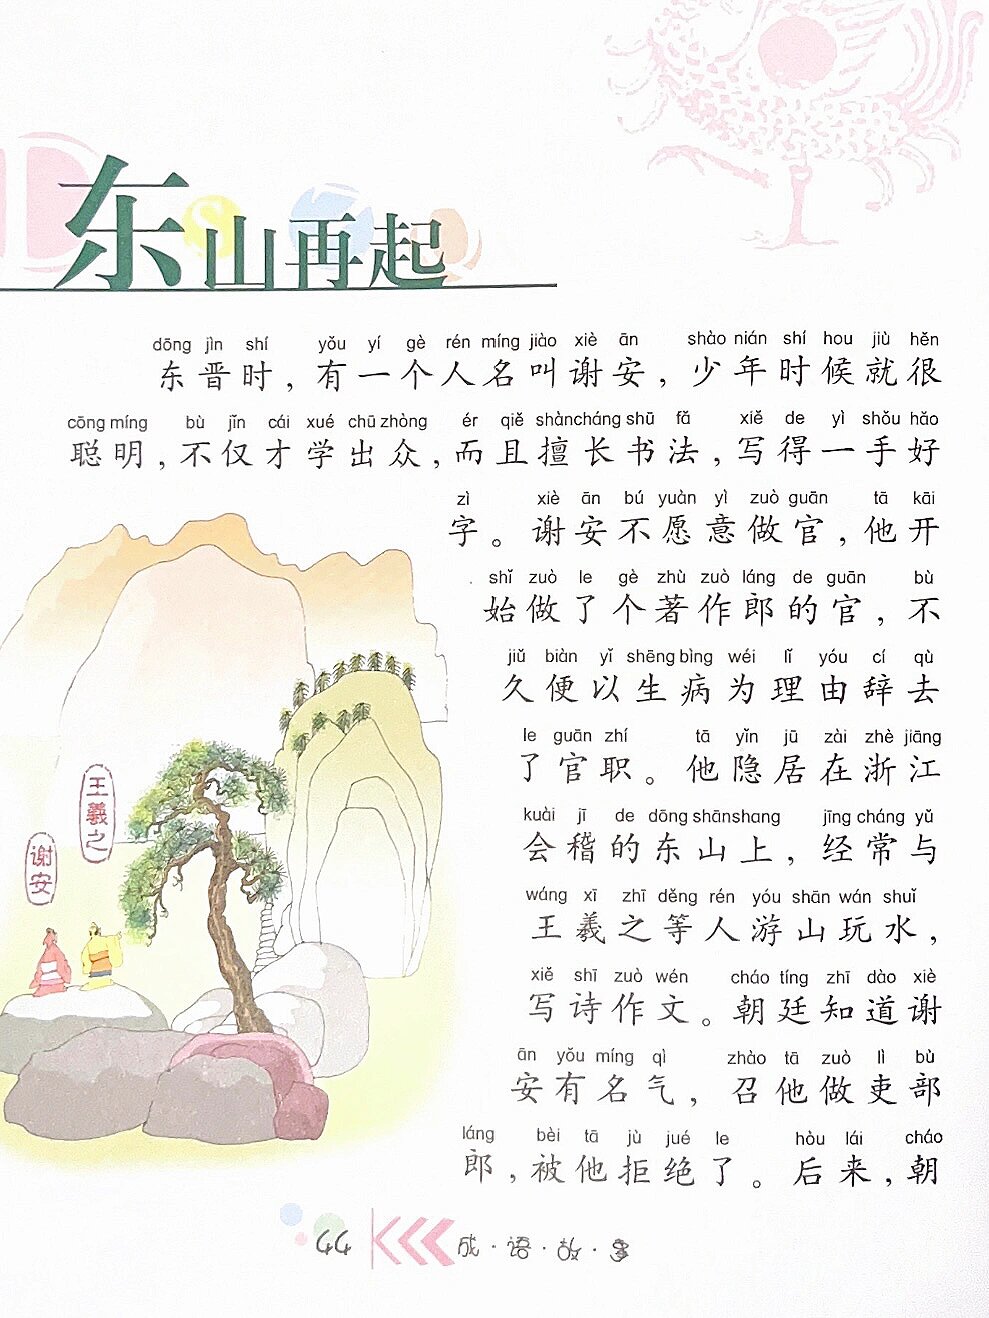 东山再起
dōng jìn shí yǒu yí gè rén míng jiào xiè ān shào nián shí hou jiù hěn
东晋时，有一个人名叫谢安，少年时候就很
cōng míng bù jǐn cái xué chū zhòng ér qiě shàn cháng shū fǎ xiě de yì shǒu hǎo
聪明，不仅才学出众，而且擅长书法，写得一手好
zì xiè ān bú yuàn yì zuò guān tā kāi
字。谢安不愿意做官，他开
shǐ zuò le gè zhù zuò láng de guān bù
始做了个著作郎的官，不
jiǔ biàn yǐ shēng bìng wéi lǐ yóu cí qù
久便以生病为理由辞去
le guān zhí tā yǐn jū zài zhè jiāng
了官职。他隐居在浙江
kuài jī de dōng shān shang jīng cháng yǔ
会稽的东山上，经常与
wáng xī zhī děng rén yóu shān wán shuǐ
王羲之等人游山玩水，
xiě shī zuò wén cháo tíng zhī dào xiè
写诗作文。朝廷知道谢
ān yǒu míng qì zhào tā zuò lì bù
安有名气，召他做吏部
láng bèi tā jù jué le hòu lái cháo
郎，被他拒绝了。后来，朝
王羲之
谢安
44 成·语·故·事